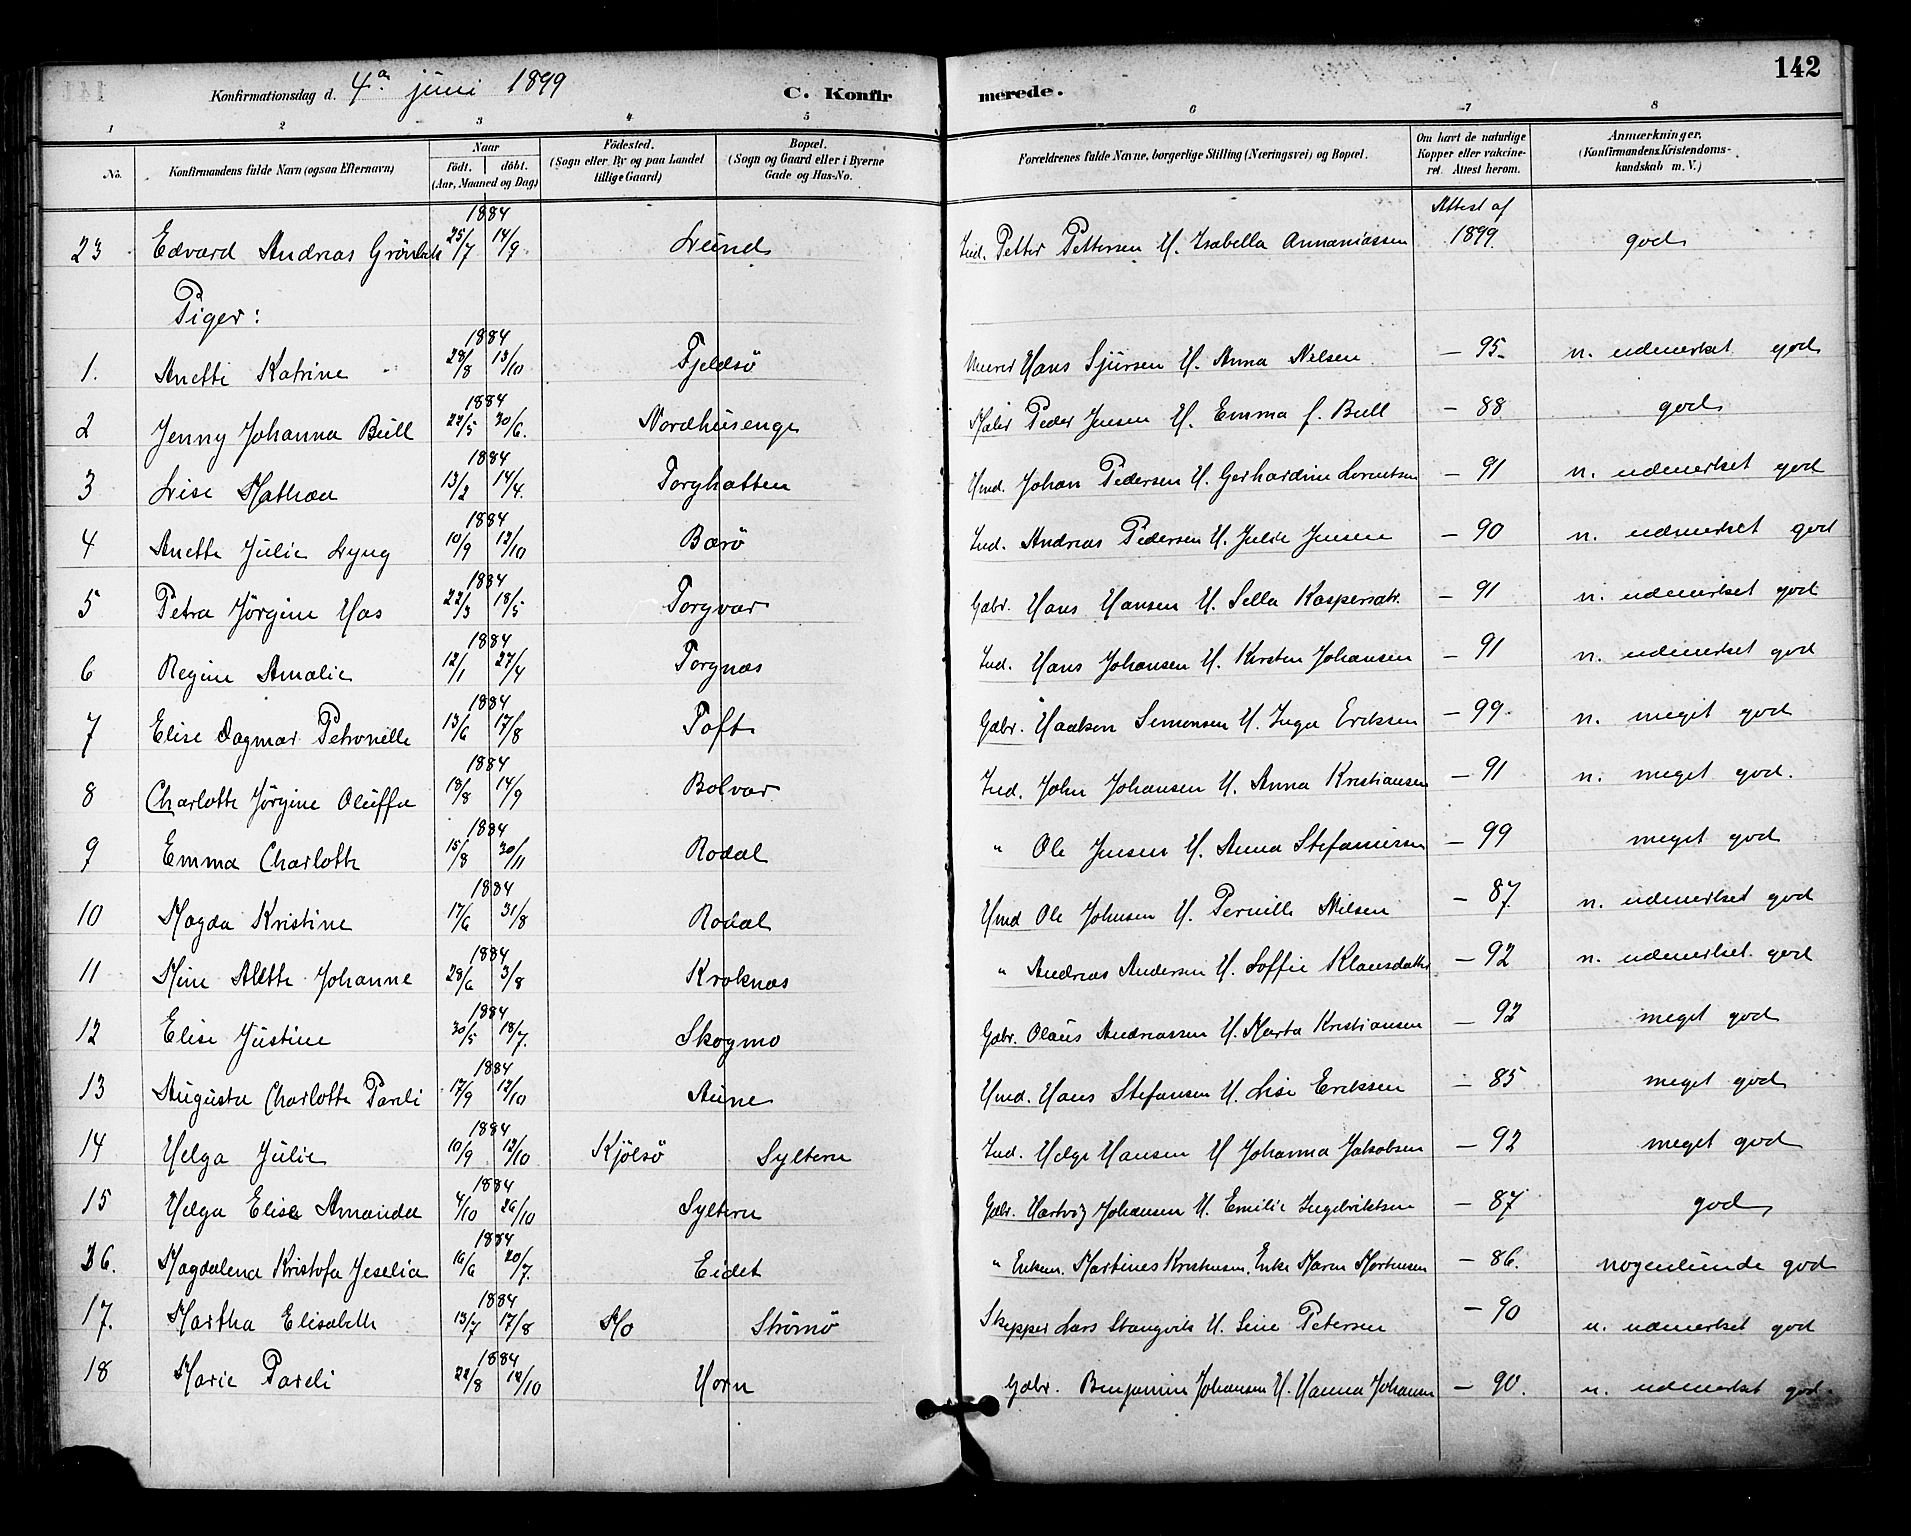 142
Konfirmationsdag d. 4de juni 1899 C. Konfirmerede.
1 2 3 4 5 6 7 8
No. Konfirmandens fulde Navn (ogsaa Efternavn) Naar født. døbt. (Aar, Maaned og Dag) Fødested. (Sogn eller By og paa Landet tillige Gaard) Bopæl. (Sogn og Gaard eller i Byerne Gade og Hus-No. Forældrenes fulde Navne, borgerlige Stilling (Næringsvei) og Bopæl. Om havt de naturlige Kopper eller vakcineret. Attest herom. Anmærkninger. (Konfirmandens Kristendomskundskab m. V.)
23 Edvard Andreas Grönbek 1884 25/7 14/9 Lund Ind. Petter Pettersen H. Isabella Annaniassen Attest af 1899 god
Piger:
1. Anette Katrine 1884 28/8 13/10 Fjeldsö Hans Sjursen H. Anna Nilsen — 95. n. udmerket god
2 Jenny Johanna Bull 1884 22/5 30/6. Nordhusenge Peder Jensen H. Emma f. Bull — 88 god
3 Lise Mathea 1884 13/2 14/4. Torghatten Hmd. Johan Pedersen H. Gerhardine Lorentsen — 91 n. udmerket god
4 Anette Julie Lyng 1884 10/9 12/10 Bærö Ind. Andreas Pedersen H. Julie Jensen — 90 n. udmerket god
5 Petra Jörgine Has 1884 22/3 18/5 Torgvær Gbr. Hans Hansen H. Sella Kaspersdtr. — 91 n. udmerket god
6 Regine Amalie 1884 12/1 27/4 Torgnæs Ind. Hans Johansen H. Kirsten Johansen — 91 n. udmerket god
7 Elise Dagmar Petronille 1884 13/6 17/8 Toft Gdbr. Haakon Simonsen H. Inga Eriksen — 99. n. meget god
8 Charlotte Jörgine Oluffa 1884 18/8 14/9 Bolvær Ind. John Johansen H. Anna Kristiansen — 91 n. meget god.
9 Emma Charlotte 1884 15/8 30/11 Rodal " Ole Jensen H. Anna Stefanussen — 99 meget god
10 Magda Kristine 1884 17/6 31/8 Rodal Hmd Ole Johnsen H. Pernille Nilsen — 87. n. udmerket god
11 Mine Alette Johanne 1884 28/6 3/8 Kroknæs " Andreas Andersen H. Soffie Klausdatter — 92 n. udmerket. god
12 Elise Justine 1884 30/5 18/7. Skogmo Gdbr. Olaus Andreassen H. Marta Kristiansen — 92 meget god
13 Augusta Charlotte Pareli 1884 17/9 12/10 Aune Hmd. Hans Stefansen H. Lise Eriksen — 85 meget god
14 Helga Julie 1884 10/9 12/10 Kjölsö Sylteren Ind. Helge Hansen H Johanna Jakobsen — 92 meget god
15 Helga Elise Amanda 1884 4/10 26/10 Sylteren Gdbr. Hartvig Johansen H. Emilie Ingebriktsen — 87 god
16. Magdalena Kristofa Jeselia 1884 16/6 20/7. Eidet " Enkem. Martines Kristensen, Enke Maren Mortensen — 86. nogenlunde god
17. Martha Elisabeth 1884 13/7 17/8 Mo Strömö Skipper Lars Stangvik H. Sine Petersen — 90 n. udmerket god
18 Marie Pareli 1884 22/8 12/10 Horn Gdbr. Benjamin Johansen H. Hanna Johansen — 90. n. udmerket god.